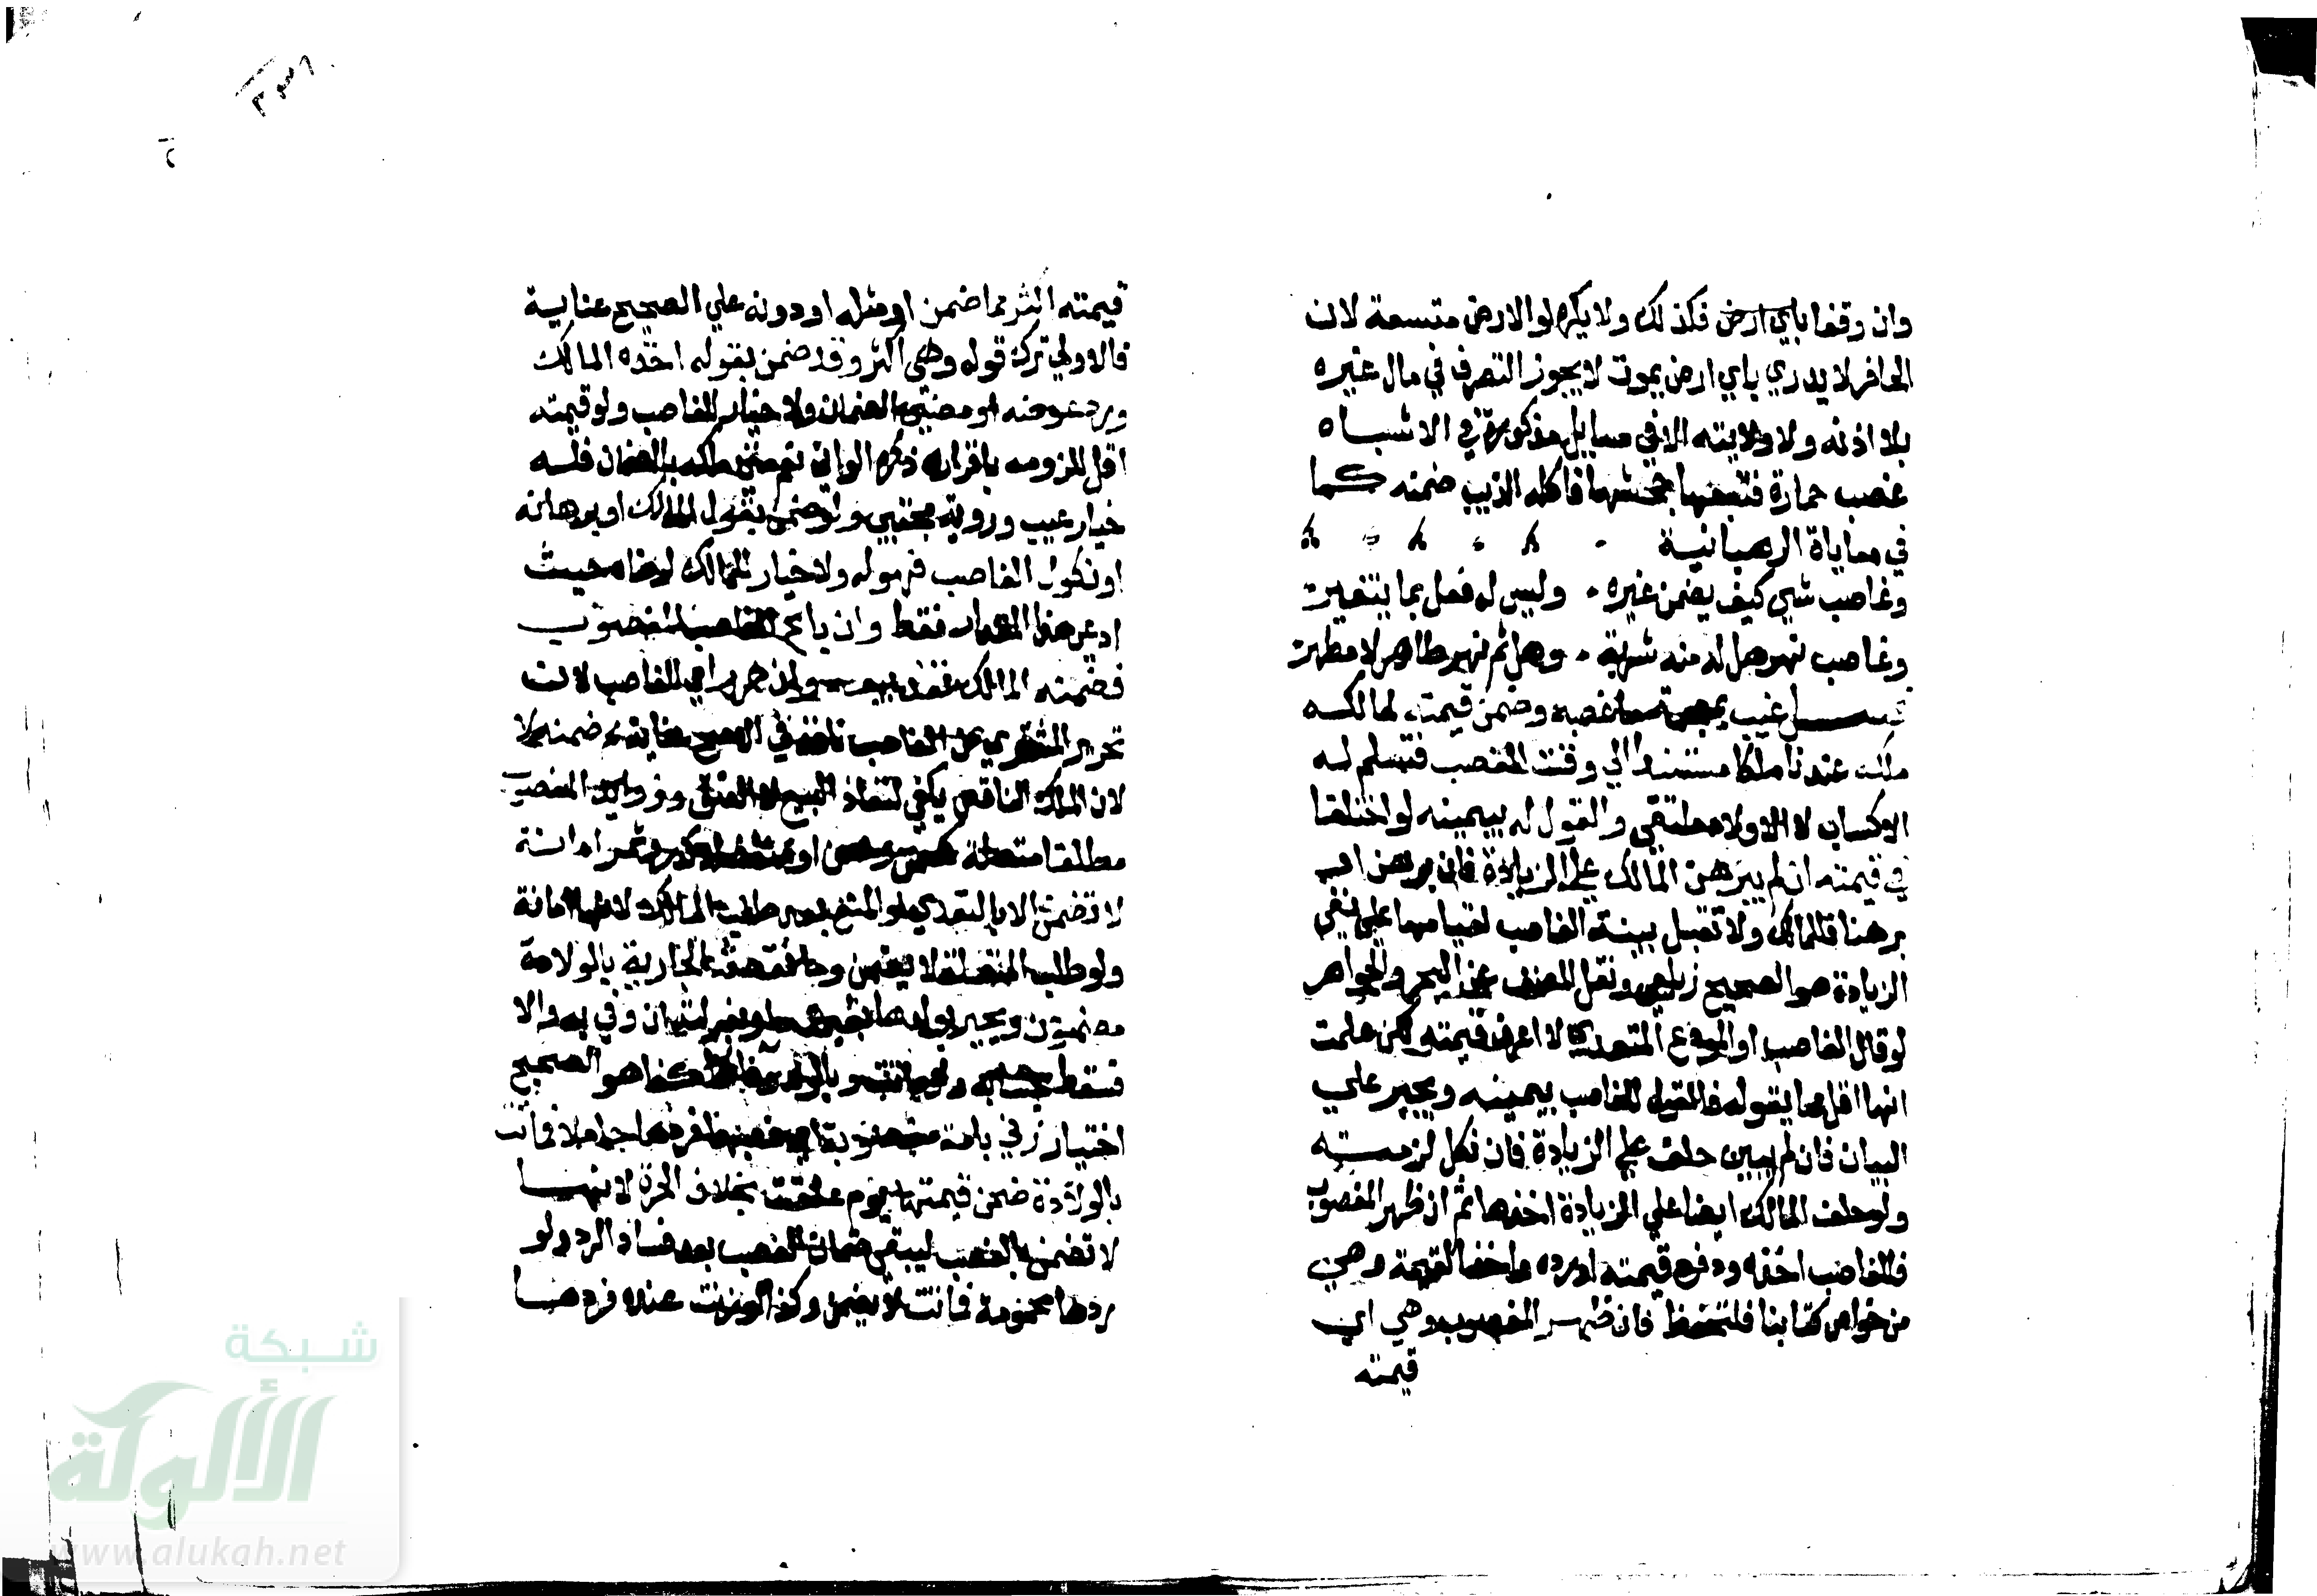 وان وقفا باي ارض فكذلك ولا يكره لو الارض متسعة لان
الحافر لا يدري باي ارض يموت لا يجوز التصرف في مال غيره
بلا اذنه ولا ولايته الا في مسايل مذكورة في الاشباه
غصب حمارة فتبعها جحشها فاكله الذيب ضمنه كما
في معاياة الوهبانية
وغاصب شي كيف يضمن غيره وليس له فعل بما يتغير
وغاصب نهر هل له منه شربة وهل ثم نهر طاهر لا مطهر
فصل غيب ما غصبه وضمن قيمته لمالكه
ملكه عندنا ملكا مستندا الي وقت الغصب فتسلم له
الاكساب لا الاولاد ملتقي والقول له بيمينه لو اختلفا
في قيمته ان لم يبرهن المالك علي الزيادة فان برهن او
برهنا فللمالك ولا تقبل بينة الغاصب لقيامها علي نفي
الزيادة هو الصحيح زيلعي ونقل المصنف عن البحر والجواهر
لو قال الغاصب او المودع المتعدي لا اعرف قيمته لكن علمت
انها اقل مما يقوله فالقول للغاصب بيمينه ويجبر علي
البيان فان لم يبين حلف علي الزيادة فان نكل لزمته
ولو حلف المالك ايضا علي الزيادة اخذها ثم ان ظهر المغصوب
فللغاصب اخذه ودفع قيمته او رده واخذ القيمة وهي
من خواص كتابنا فلتحفظ فان ظهر المغصوب وهي اي
قيمته
قيمته اكثر مما ضمن او مثله او دونه علي الصحيح عناية
فالاولي ترك قوله وهي اكثر وقد ضمن بقوله اخذه المالك
ورد عوضه او امضي الضمان ولا خيار للغاصب ولو قيمته
اقل للزومه باقراره ذكره الواني نعم متي ملكه بالضمان فله
خيار عيب وروية مجتبي ولو ضمن بقول المالك او برهانه
او نكول الغاصب فهو له ولا خيار للمالك لرضاه حيث
ادعي هذا المقدار فقط وان باع الغاصب المغصوب
فضمنه المالك نفذ بيعه وان حرره اي الغاصب لا لان
تحرير المشتري من الغاصب نافذ في الاصح عناية ضمنه لا
لان الملك الناقص يكفي لنفاذ البيع لا العتق وزوايد المغصوب
مطلقا متصلة كسمن وحسن او منفصلة كدر وثمر امانة
لا تضمن الا بالتعدي او المنع بعد طلب المالك لانها امانة
ولو طلب المتصلة لا يضمن وما نقصته الجارية بالولادة
مضمون ويجبر بولدها بقيمته او بغرته ان وفي به والا
فسقط بحسابه ولو ماتت وبالولد وفا كفي هو الصحيح
اختيار زني بامة مغصوبة اي غصبها فردها حاملا فماتت
بالولادة ضمن قيمتها يوم علقت بخلاف الحرة لانها
لا تضمن بالغصب ليبقي ضمان الغصب بعد فساد الرد ولو
ردها محمومة فماتت لا يضمن وكذا لو زنت عنده فردها
شبكة
الألوكة
www.alukah.net